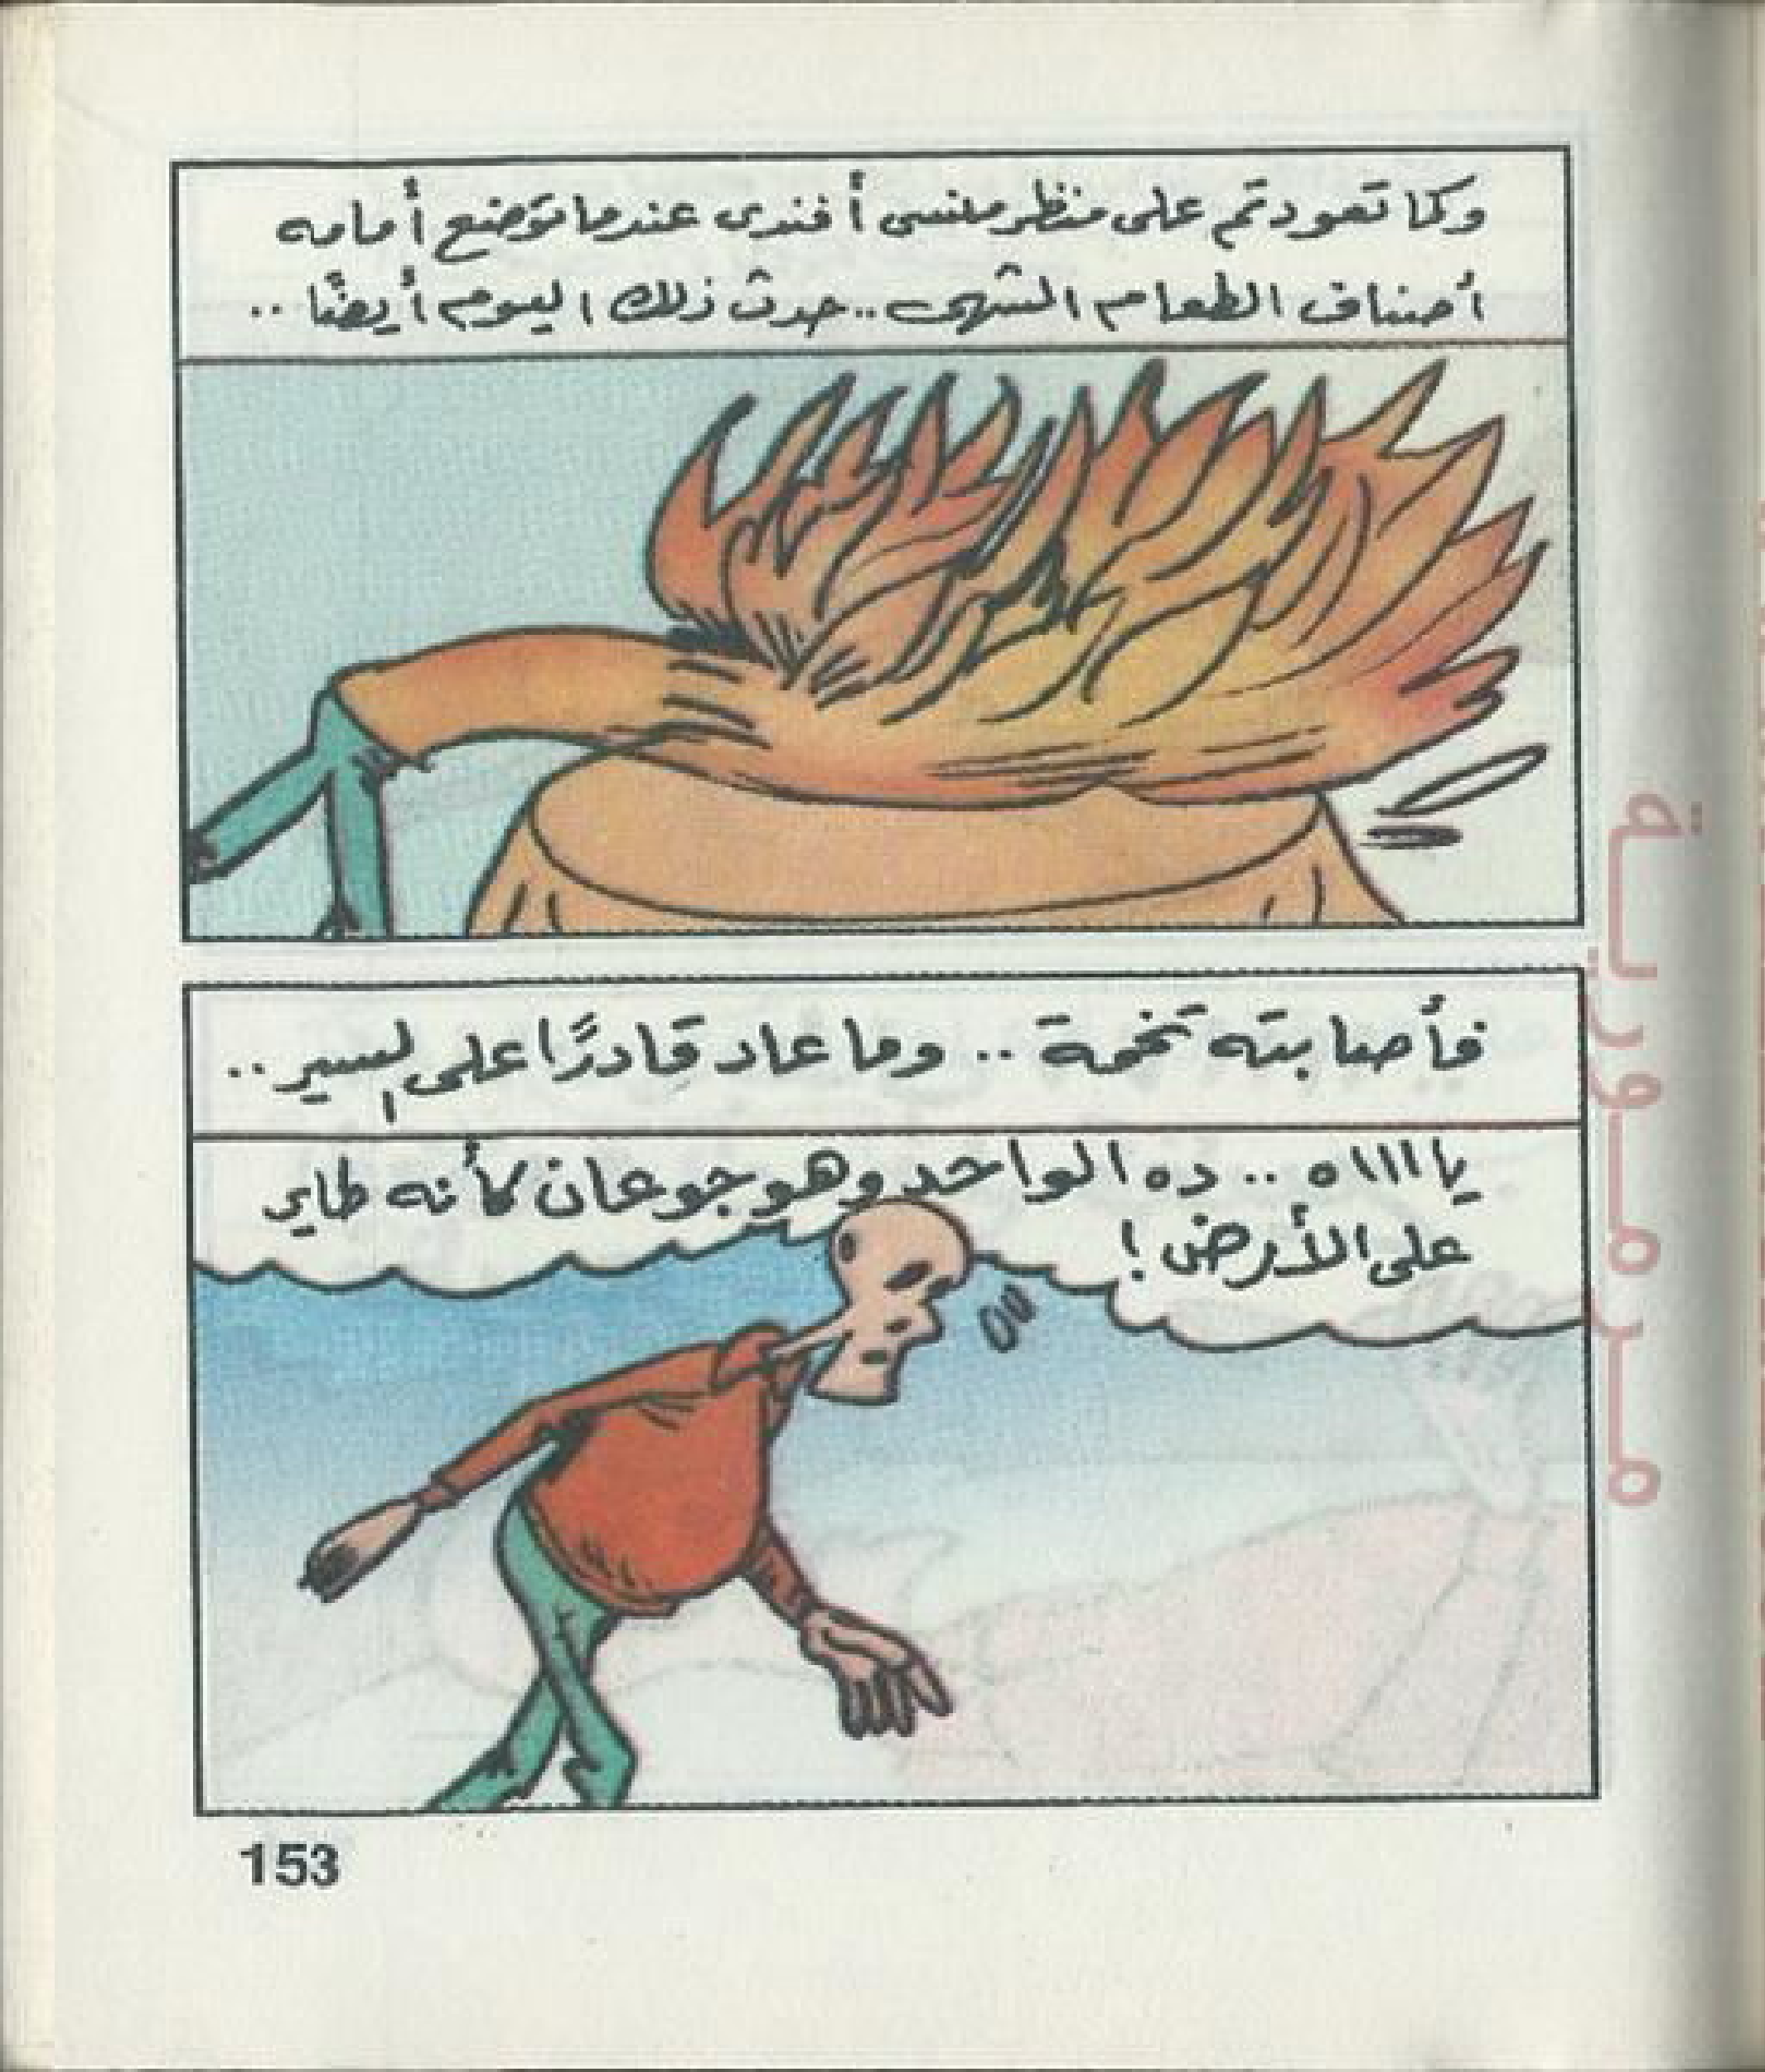 وكما تعودتم على منظر منسى أفندى عندما توضع أمامه
أصناف الطعام الشهى .. حدث ذلك اليوم أيضًا ..
فأصابته تخمة .. وما عاد قادرًا على السير ..
ياااااه .. ده الواحد وهو جوعان كأنه طاير
على الأرض !
153